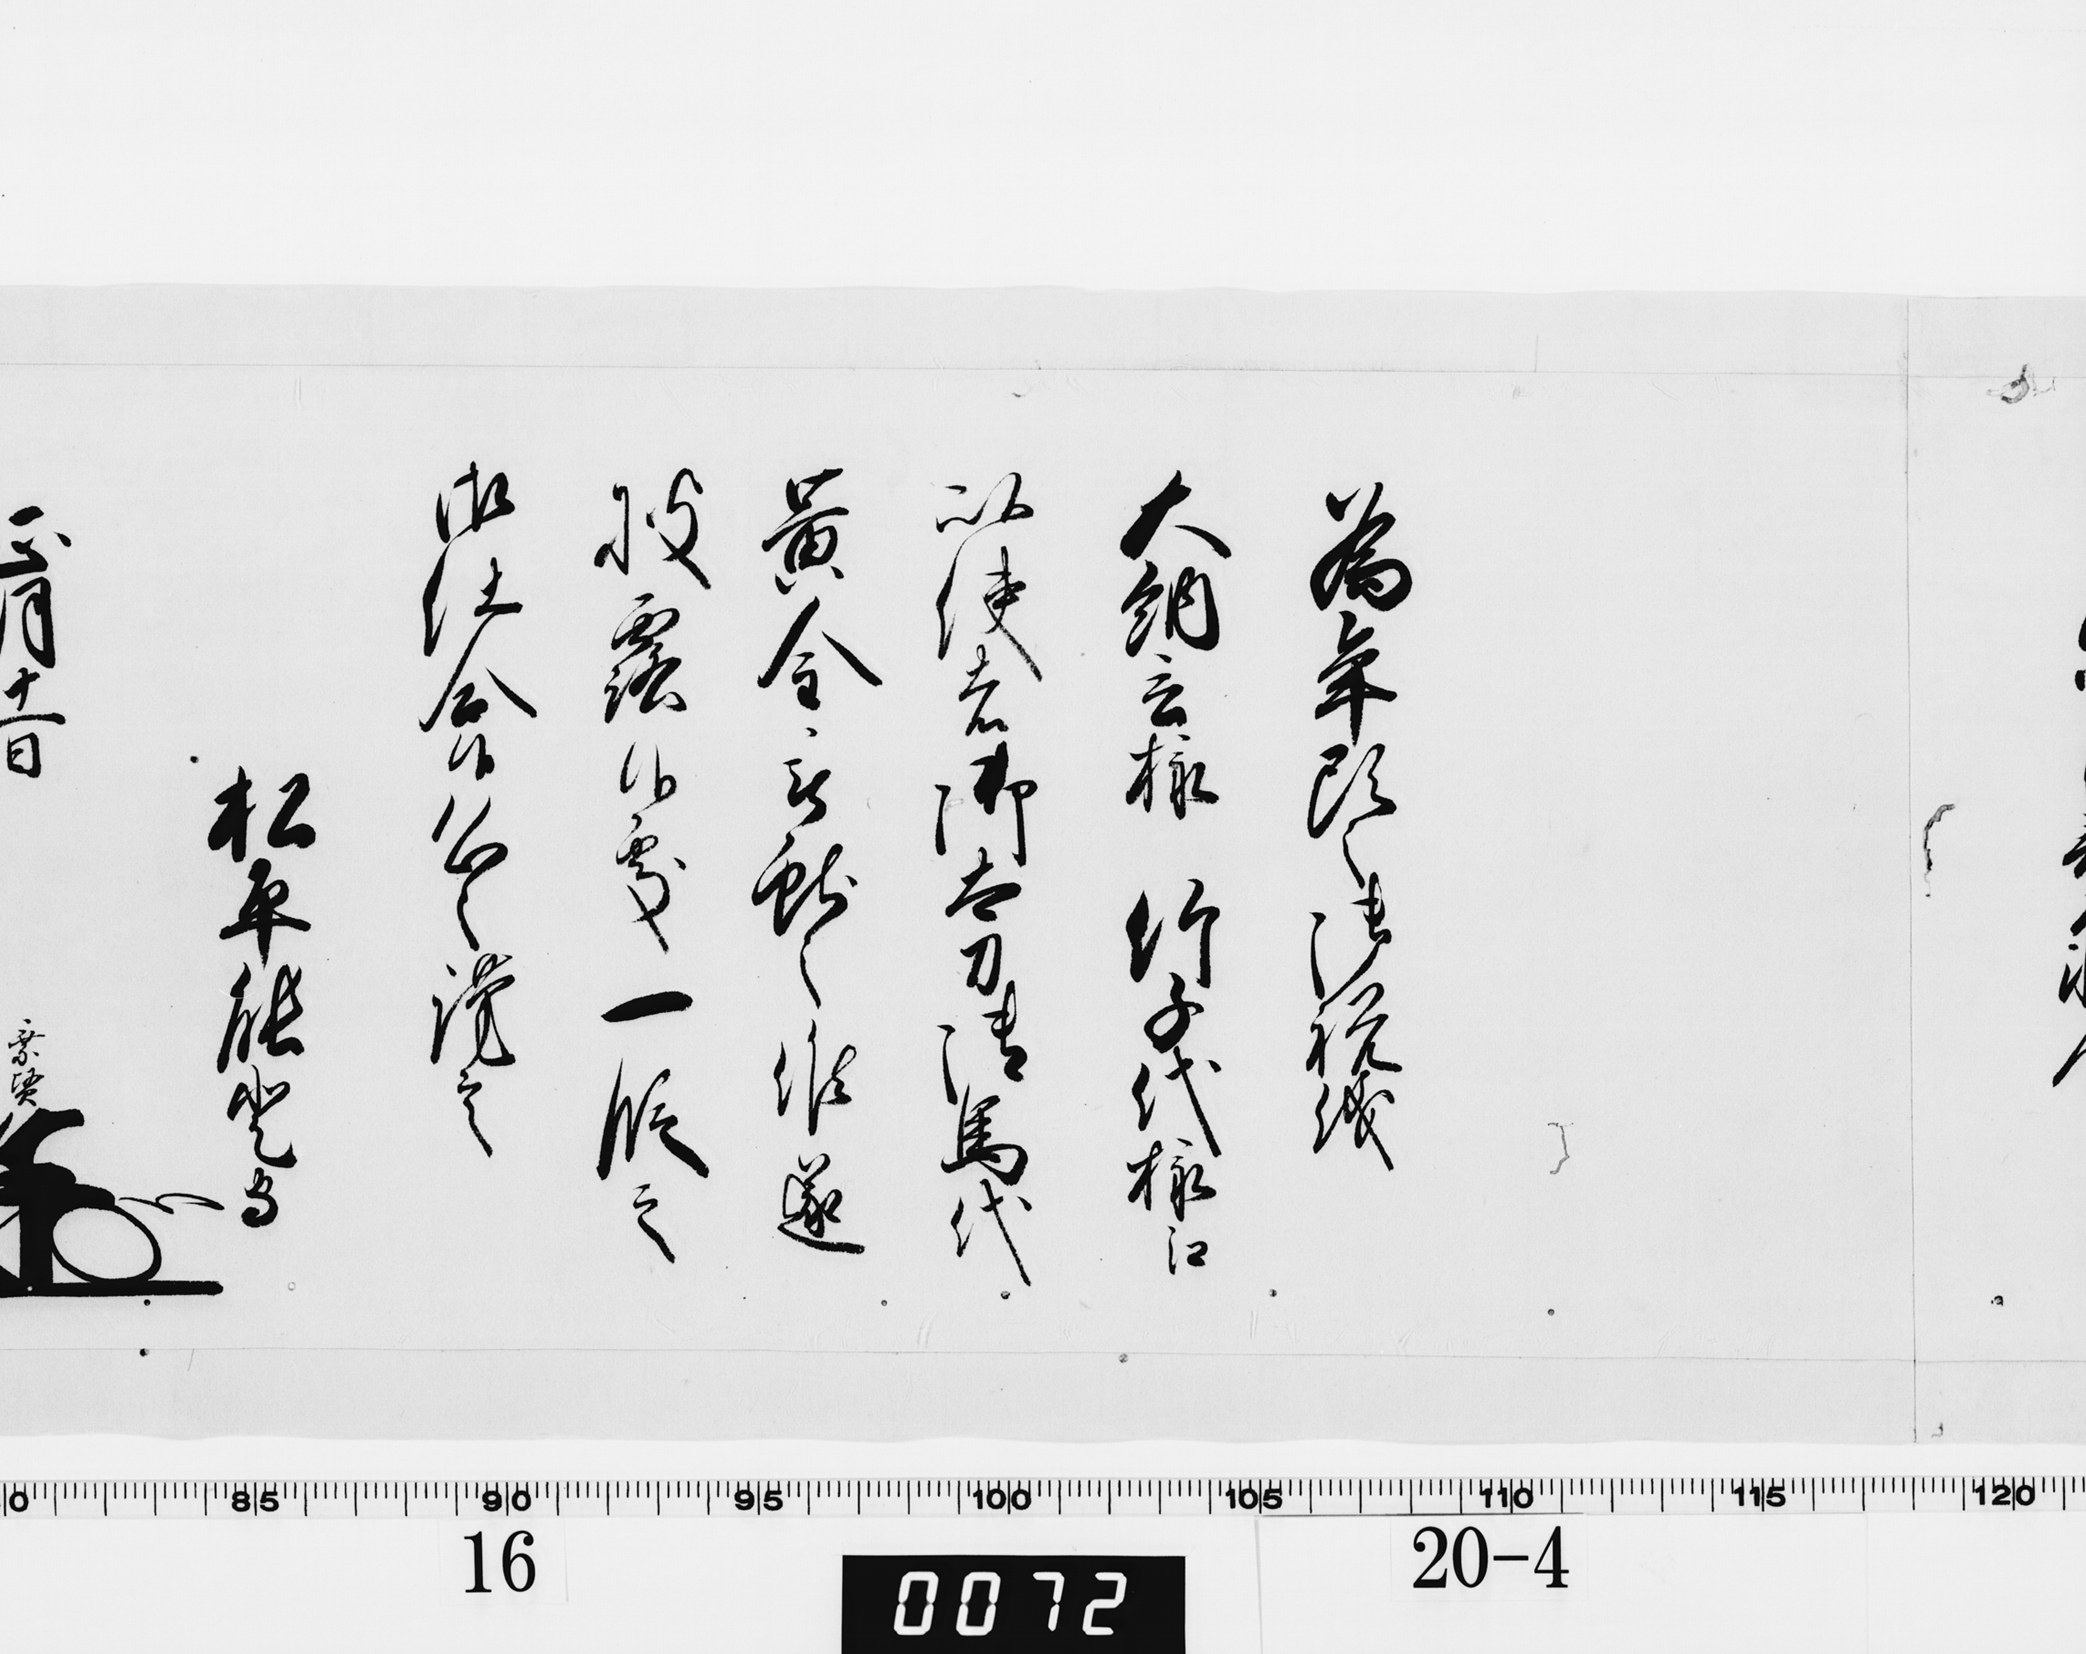 為年頭之御祝儀
大納言様 竹千代様江
以使者御太刀御馬代
黄金被献之候遂
披露候処一段之
御仕合候恐々謹言
松平能登守
乗賢
正月十一日
80 85 90 95 100 105 110 115 120
16
20-4
0072